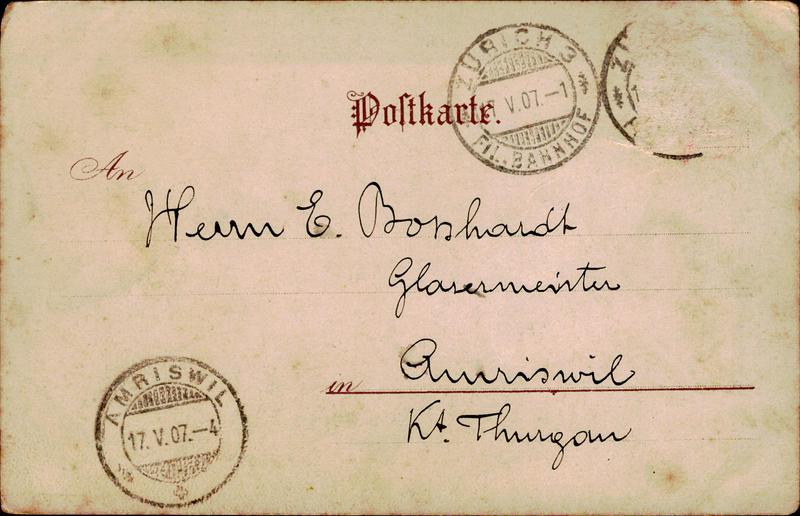 ZÜRICH 3
V.07.–1
FIL. BAHNHOF
Postkarte.
An
Herrn E. Boßhardt
Glasermeister
in Amriswil
Kt. Thurgau
AMRISWIL
17.V.07.–4